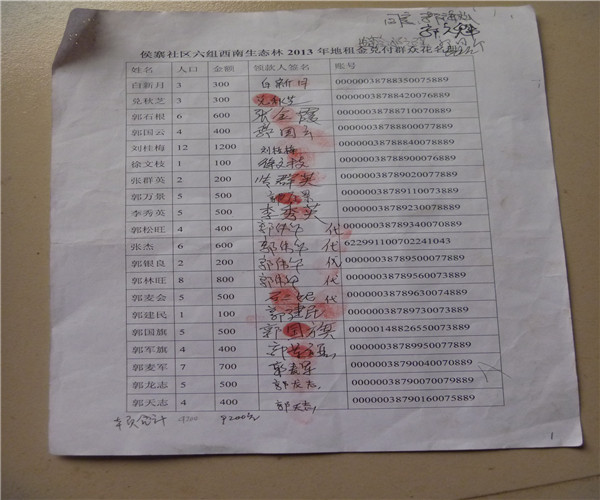 侯寨社区六组西南生态林2013年地租金兑付群众花名册
姓名 人口 金额 领款人签名 账号
白新月 3 300 白新月 00000038788350075889
兑秋芝 3 300 00000038788420076889
郭石根 6 600 张金霞 00000038788710070889
郭国云 4 400 郭国云 00000038788800077889
刘桂梅 12 1200 刘桂梅 00000038788840078889
徐文枝 1 100 徐文枝 00000038788900076889
张群英 2 200 张群英 00000038789020077889
郭万景 5 500 00000038789110073889
李秀英 5 500 李秀英 00000038789230078889
郭松旺 4 400 代 00000038789340070889
张杰 6 600 代 622991100702241043
郭银良 2 200 代 00000038789500077889
郭林旺 8 800 代 00000038789560073889
郭麦会 5 500 代 00000038789630074889
郭建民 1 100 郭建民 00000038789730073889
郭国旗 5 500 郭国旗 00000148826550073889
郭军旗 4 400 00000038789950077889
郭麦军 7 700 郭麦军 00000038790040070889
郭龙志 5 500 郭龙志 00000038790070079889
郭天志 4 400 郭天志 00000038790160075889
本页合计